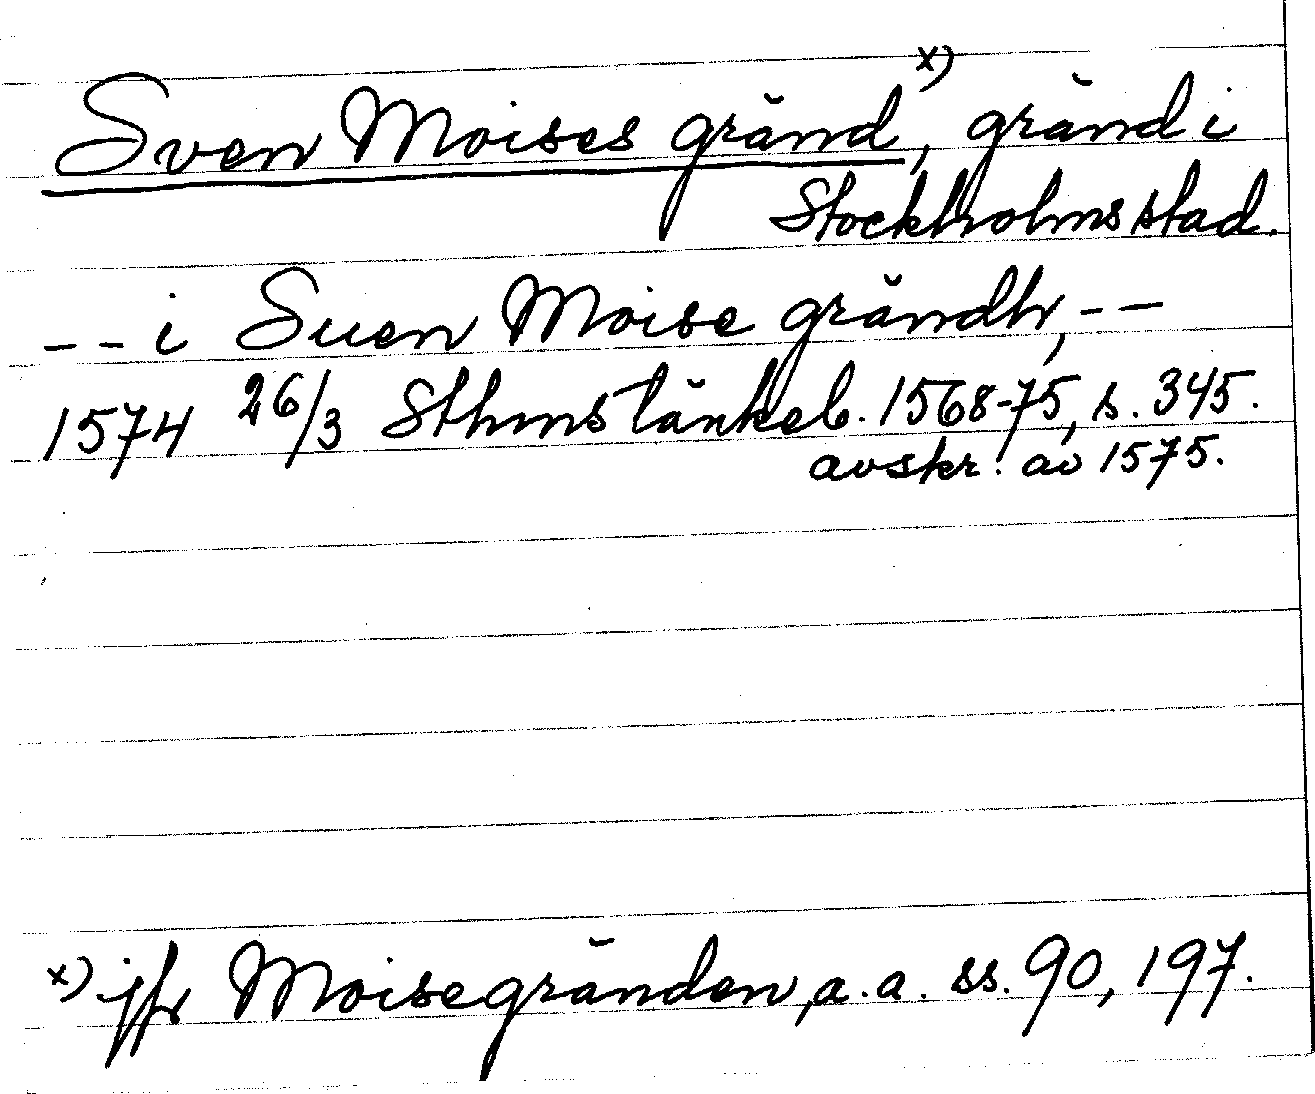 Sven Moises gränd x), gränd i
Stockholms stad.
-- i Suen Moise grändh, --
1574 26/3 Sthms tänkeb. 1568-75, s. 345.
avskr. av 1575.
x) jfr Moisegränden, a.a. ss. 90, 197.